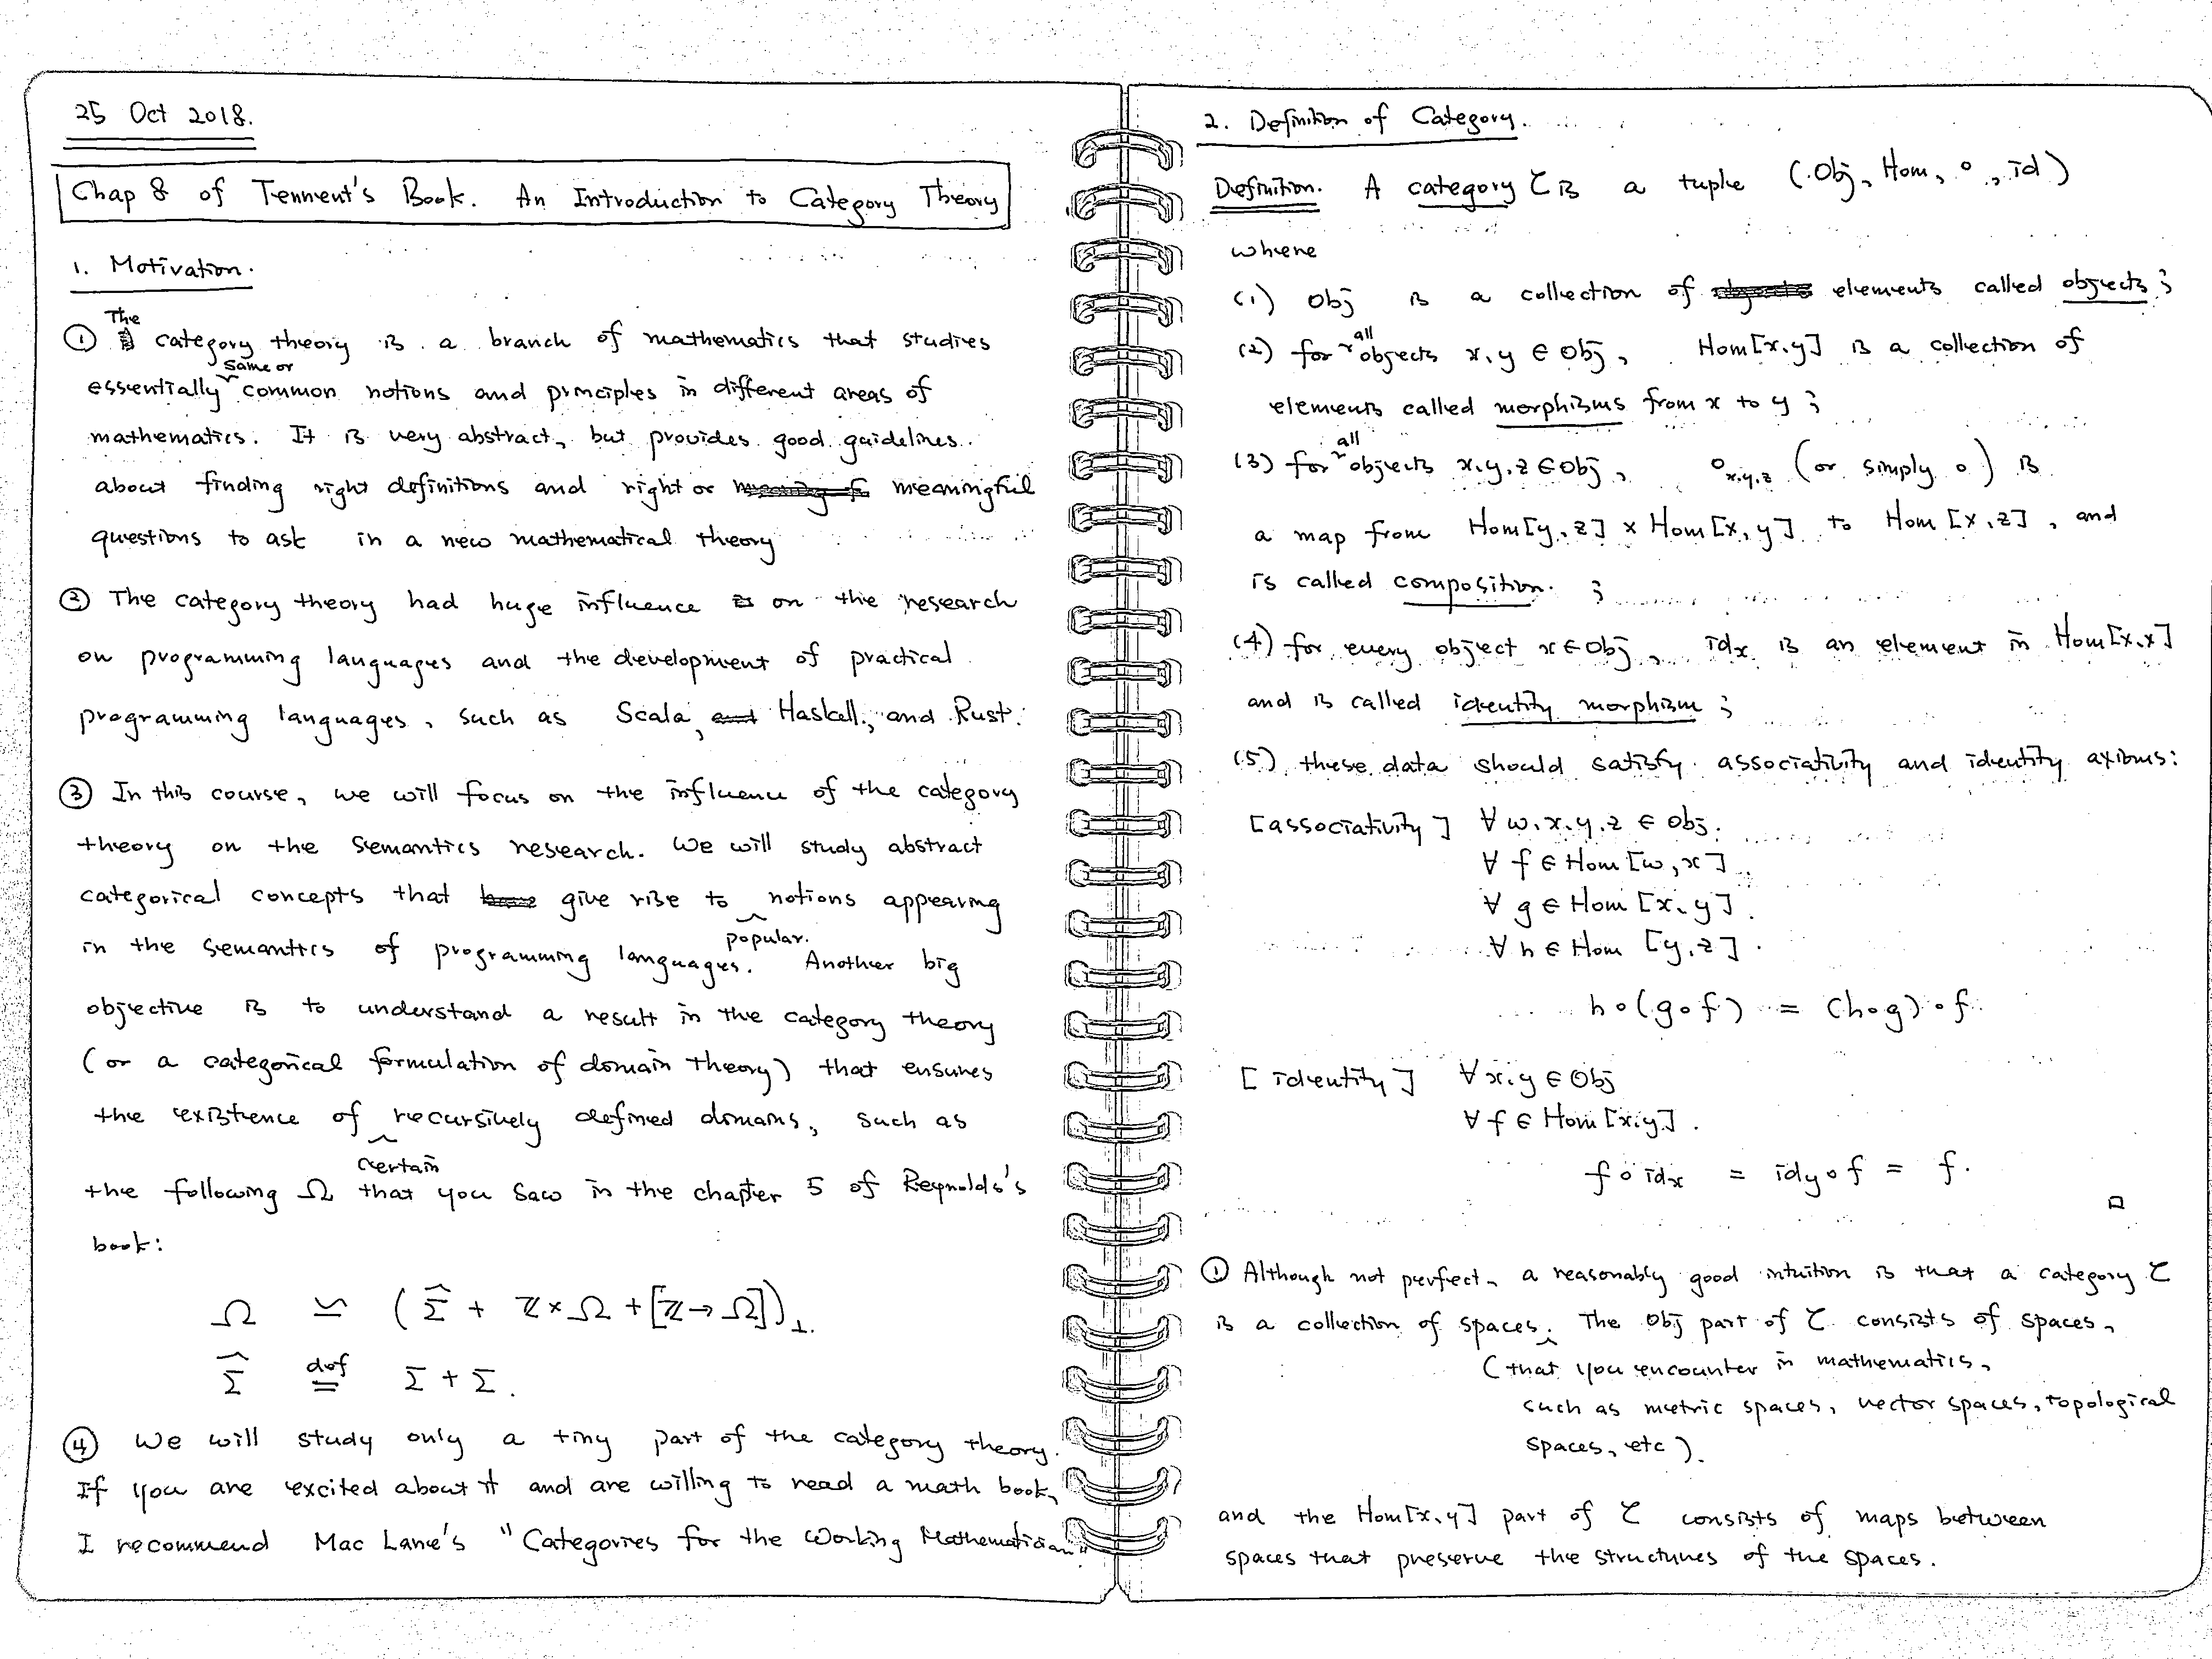 25 Oct 2018.
Chap 8 of Tennent's Book. An Introduction to Category Theory
1. Motivation.
① The category theory is a branch of mathematics that studies
essentially same or common notions and principles in different areas of
mathematics. It is very abstract, but provides good guidelines
about finding right definitions and right or meaningful
questions to ask in a new mathematical theory
② The category theory had huge influence on the research
on programming languages and the development of practical
programming languages, such as Scala, Haskell, and Rust.
③ In this course, we will focus on the influence of the category
theory on the semantics research. We will study abstract
categorical concepts that give rise to popular notions appearing
in the semantics of programming languages. Another big
objective is to understand a result in the category theory
(or a categorical formulation of domain theory) that ensures
the existence of certain recursively defined domains, such as
the following Ω that you saw in the chapter 5 of Reynolds's
book:
Ω ≃ (Σ̂ + ℤ × Ω + [ℤ → Ω])⊥.
Σ̂ def= Σ + Σ.
④ We will study only a tiny part of the category theory.
If you are excited about it and are willing to read a math book,
I recommend Mac Lane's "Categories for the Working Mathematician"
2. Definition of Category.
Definition. A category C is a tuple (Obj, Hom, ∘, id)
where
(1) Obj is a collection of elements called objects;
(2) for all objects x, y ∈ Obj, Hom[x,y] is a collection of
elements called morphisms from x to y;
(3) for all objects x,y,z ∈ Obj, ∘x,y,z (or simply ∘) is
a map from Hom[y,z] × Hom[x,y] to Hom[x,z], and
is called composition. ;
(4) for every object x ∈ Obj, idx is an element in Hom[x,x]
and is called identity morphism;
(5) these data should satisfy associativity and identity axioms:
[associativity] ∀ w,x,y,z ∈ Obj.
∀ f ∈ Hom[w,x].
∀ g ∈ Hom[x,y].
∀ h ∈ Hom[y,z].
h∘(g∘f) = (h∘g)∘f.
[identity] ∀x,y ∈ Obj
∀ f ∈ Hom[x,y].
f ∘ idx = idy ∘ f = f.
□
① Although not perfect, a reasonably good intuition is that a category C
is a collection of spaces. The Obj part of C consists of spaces,
(that you encounter in mathematics,
such as metric spaces, vector spaces, topological
spaces, etc).
and the Hom[x,y] part of C consists of maps between
spaces that preserve the structures of the spaces.